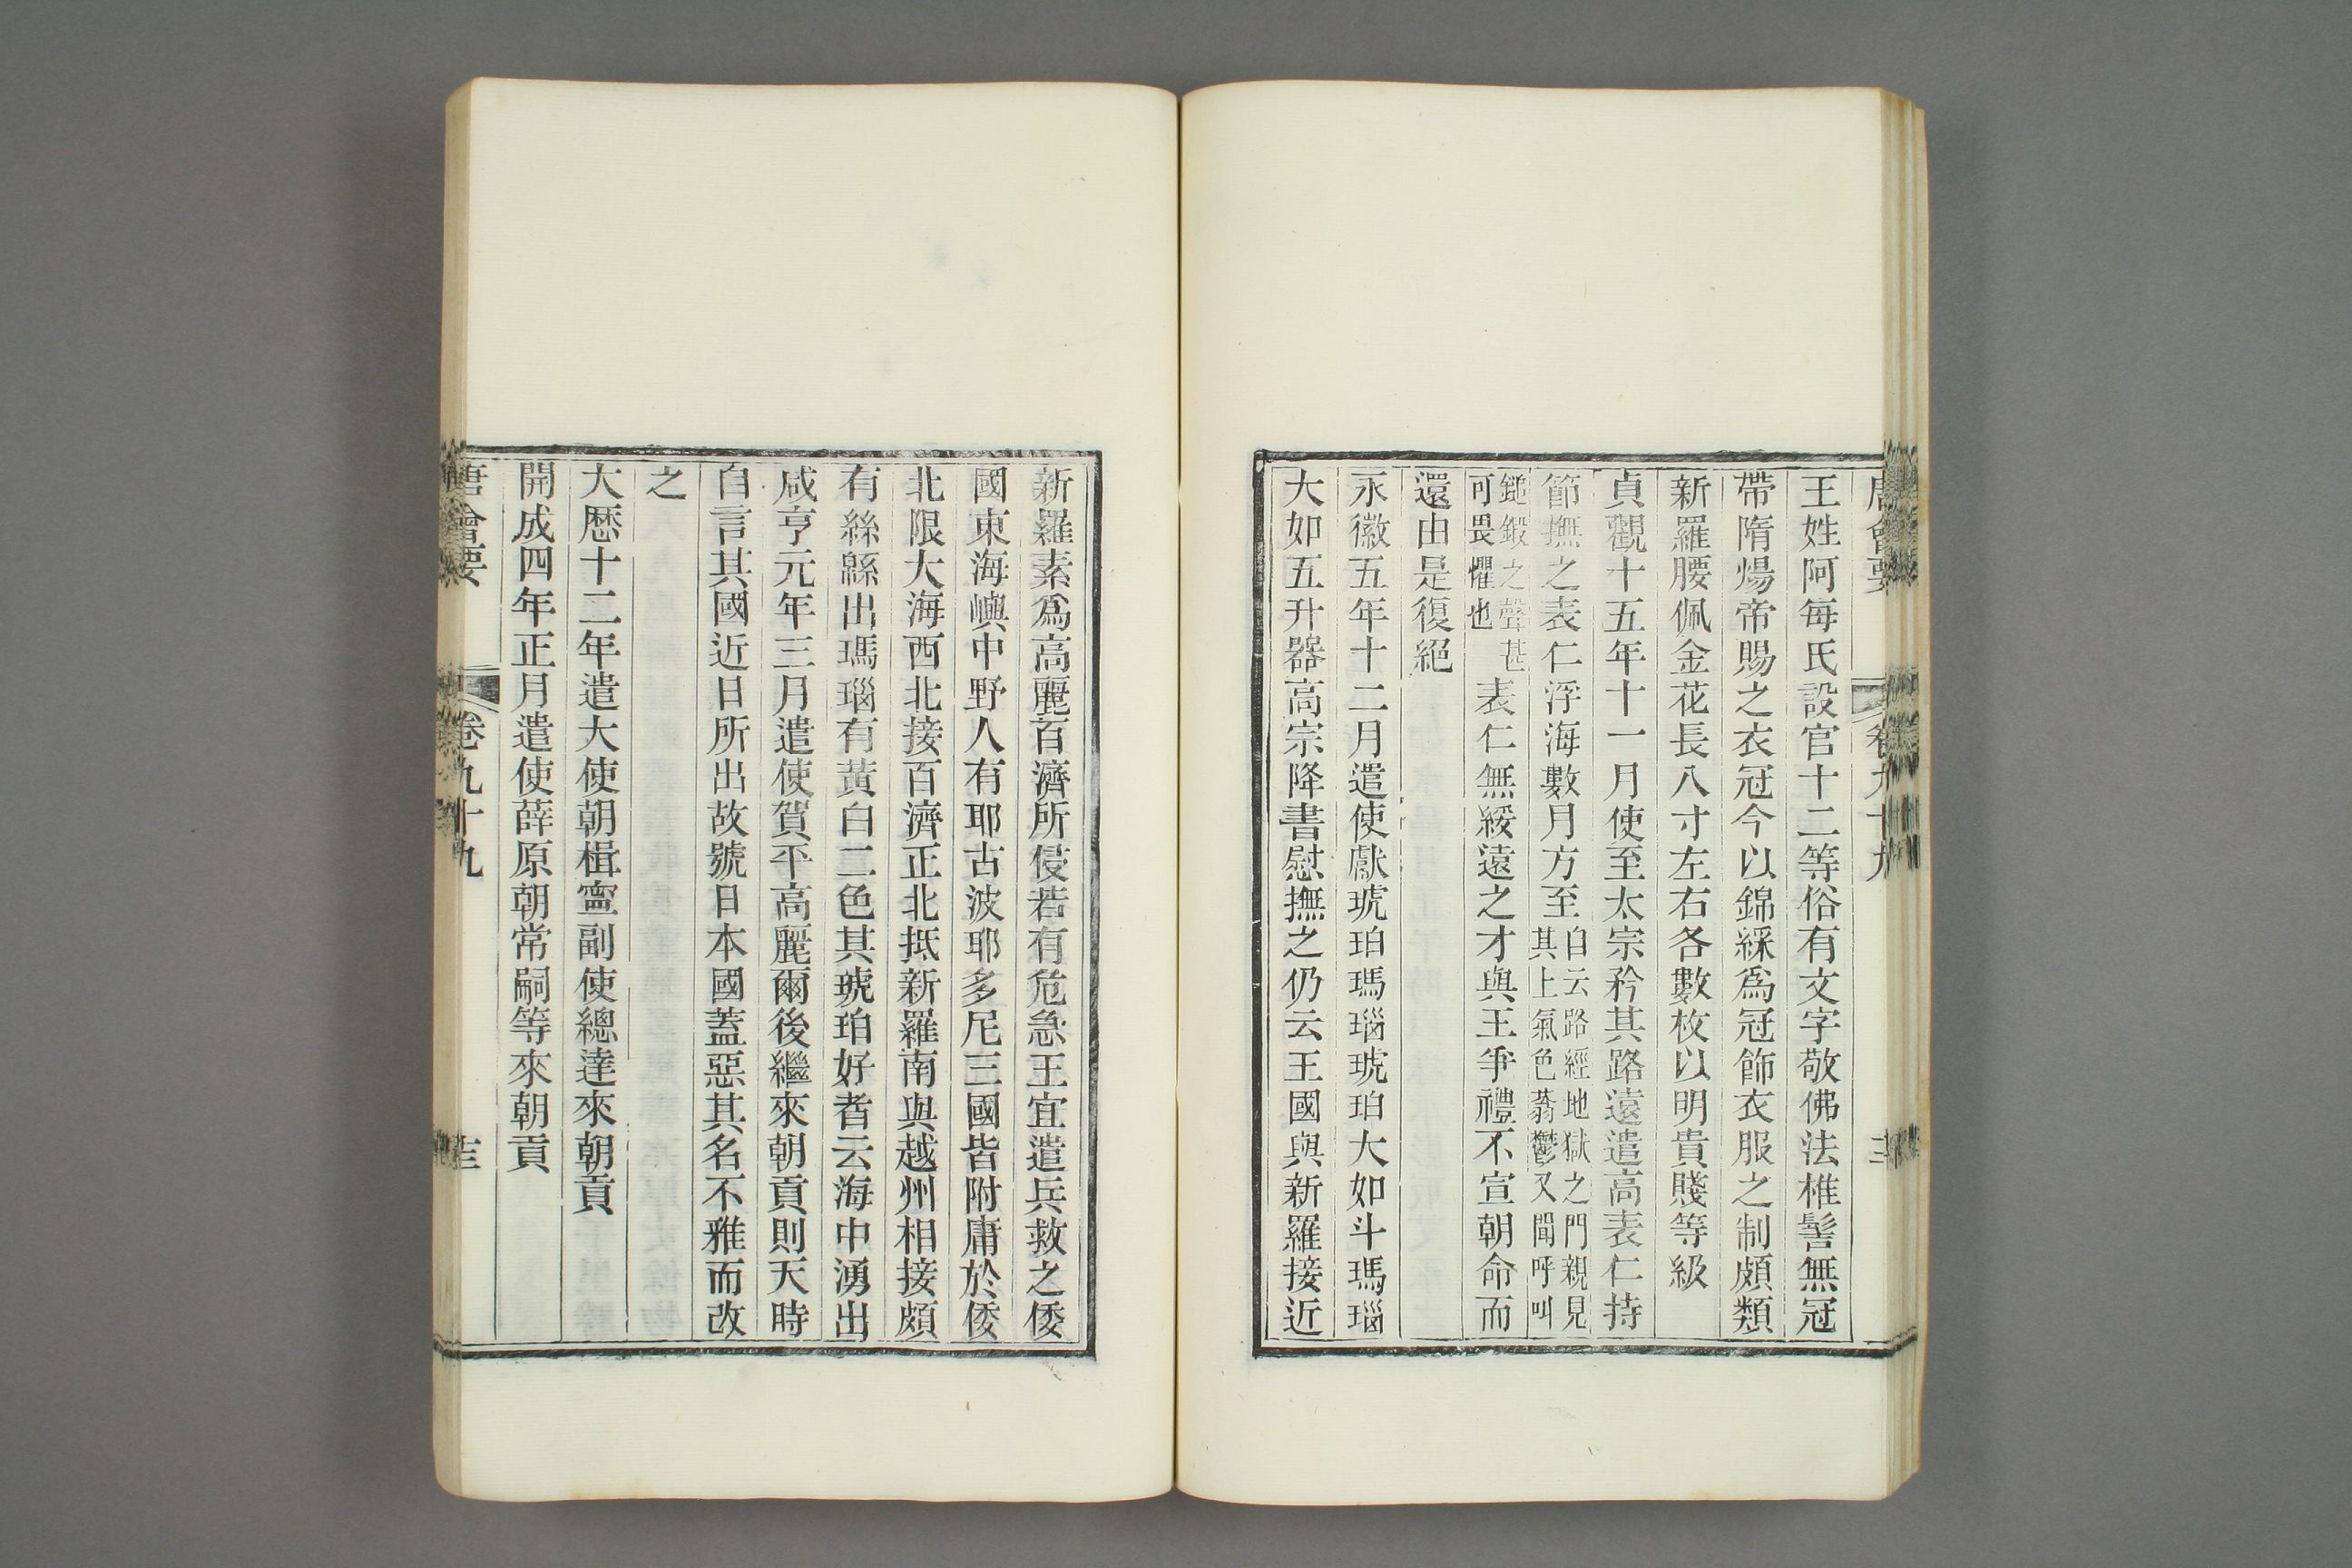 唐會要 卷九十九
王姓阿每氏設官十二等俗有文字敬佛法椎髻無冠
帶隋煬帝賜之衣冠今以錦綵爲冠飾衣服之制頗類
新羅腰佩金花長八寸左右各數枚以明貴賤等級
貞觀十五年十一月使至太宗矜其路遠遣高表仁持
節撫之表仁浮海數月方至自云路經地獄之門親見其上氣色蓊鬱又聞呼叫
鎚鍛之聲甚可畏懼也表仁無綏遠之才與王爭禮不宣朝命而
還由是復絕
永徽五年十二月遣使獻琥珀瑪瑙琥珀大如斗瑪瑙
大如五升器高宗降書慰撫之仍云王國與新羅接近
新羅素爲高麗百濟所侵若有危急王宜遣兵救之倭
國東海嶼中野人有耶古波耶多尼三國皆附庸於倭
北限大海西北接百濟正北抵新羅南與越州相接頗
有絲緜出瑪瑙有黃白二色其琥珀好者云海中湧出
咸亨元年三月遣使賀平高麗爾後繼來朝貢則天時
自言其國近日所出故號日本國蓋惡其名不雅而改
之
大曆十二年遣大使朝楫寧副使總達來朝貢
開成四年正月遣使薛原朝常嗣等來朝貢
唐會要 卷九十九